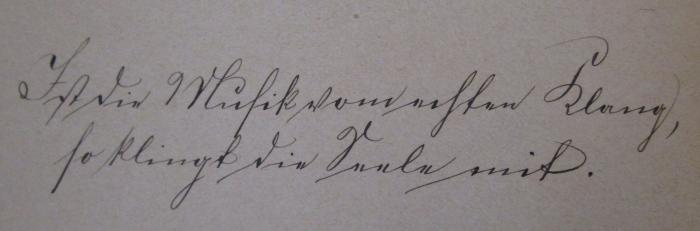 Ist die Musik vom echten Klang,
so klingt die Seele mit.